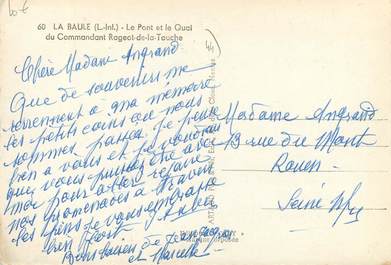 60 LA BAULE (L.-Inf.) - Le Pont et le Quai
du Commandant Rageot-de-la-Touche
44
Chère Madame Angrand
Que de souvenirs me
reviennent à ma mémoire
les petits coins où nous
sommes passés. Je pense
bien à vous et je voudrais
que vous puissiez être avec
moi pour aller refaire
nos promenades à travers
les pins. Je vous embrasse
bien fort
Bons baisers de Jean
et
Madame Angrand
13 rue du Mont
Rouen
Seine Mme